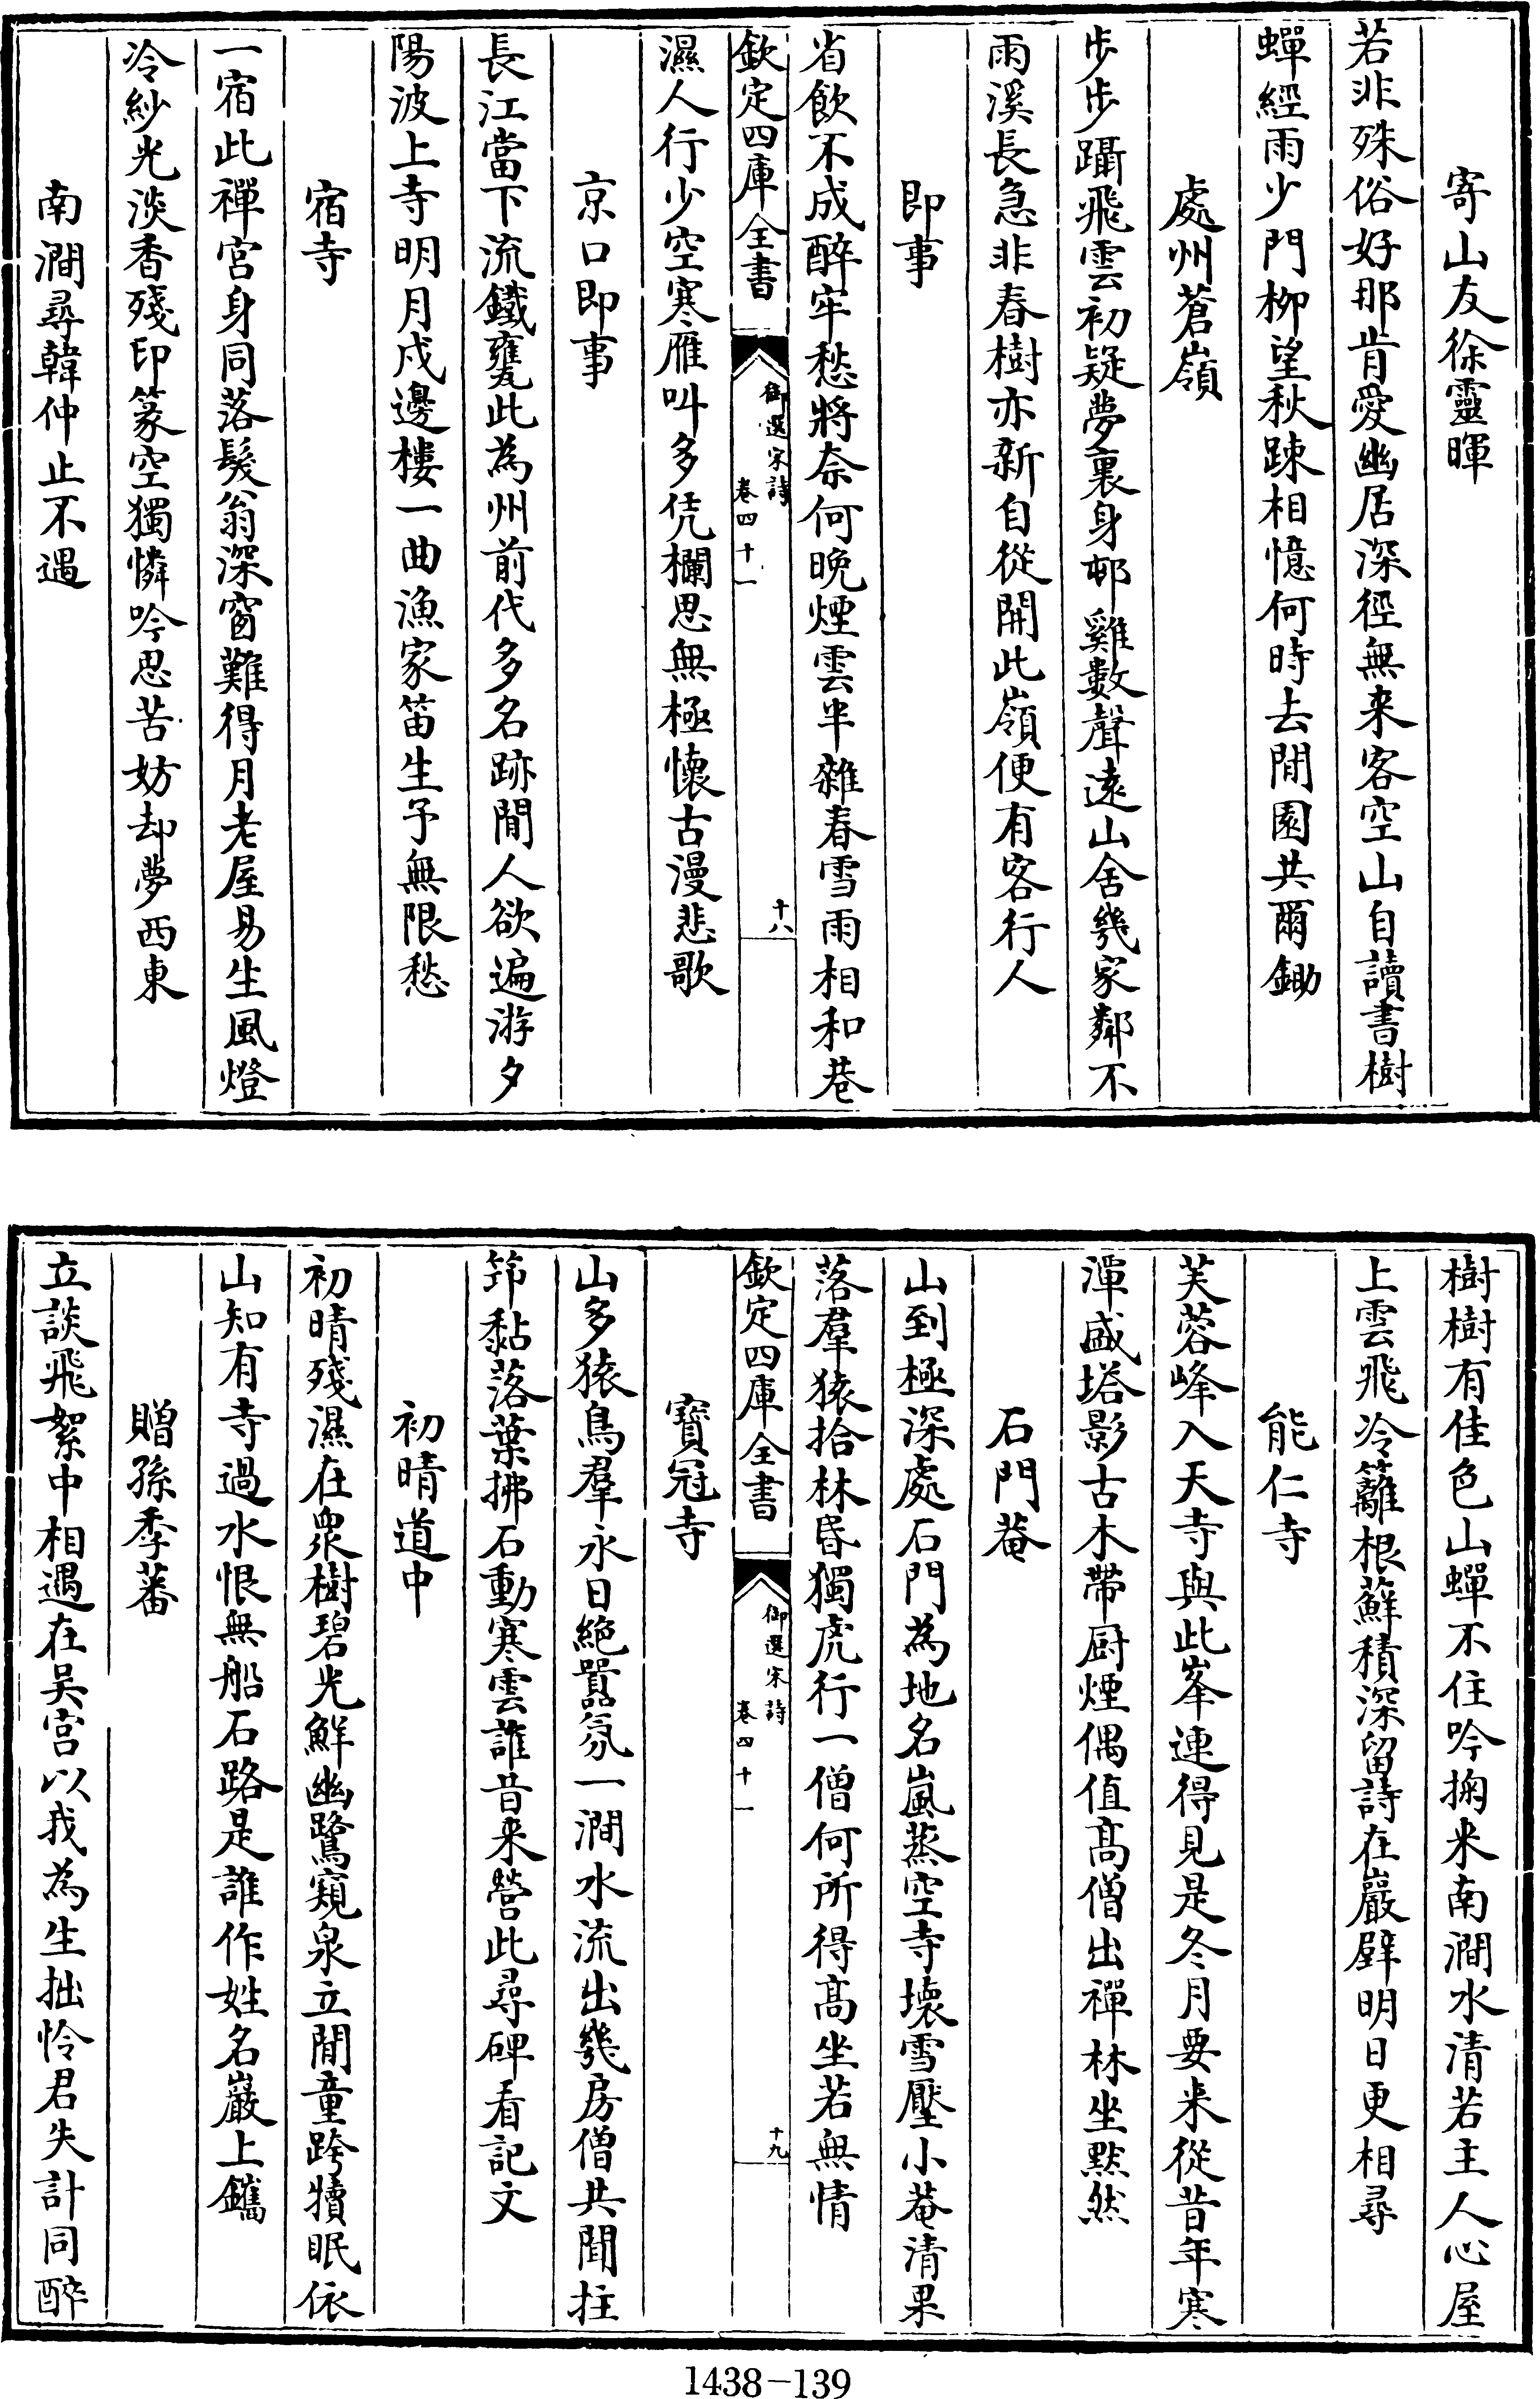 寄山友徐靈暉
若非殊俗好那肯愛幽居深徑無来客空山自讀書樹
蟬經雨少門柳望秋踈相憶何時去閒園共爾鋤
處州蒼嶺
步步躡飛雲初疑夢裏身邨雞數聲遠山舍幾家鄰不
雨溪長急非春樹亦新自從開此嶺便有客行人
即事
省飲不成醉牢愁將奈何晚煙雲半雜春雪雨相和巷
欽定四庫全書
御選宋詩
卷四十一
十八
濕人行少空寒雁叫多凭欄思無極懷古漫悲歌
京口即事
長江當下流鐵甕此為州前代多名跡閒人欲遍游夕
陽波上寺明月戍邊樓一曲漁家笛生予無限愁
宿寺
一宿此禪宮身同落髮翁深窗難得月老屋易生風燈
冷紗光淡香殘印篆空獨憐吟思苦妨却夢西東
南澗尋韓仲止不遇
樹樹有佳色山蟬不住吟掬来南澗水清若主人心屋
上雲飛冷籬根蘚積深留詩在巖壁明日更相尋
能仁寺
芙蓉峰入天寺與此峯連得見是冬月要来從昔年寒
潭盛塔影古木帶厨煙偶值髙僧出禪林坐黙然
石門菴
山到極深處石門為地名嵐蒸空寺壊雪壓小菴清果
落羣猿拾林昏獨虎行一僧何所得髙坐若無情
欽定四庫全書
御選宋詩
卷四十一
十九
寶冠寺
山多猿鳥羣永日絶囂氛一澗水流出幾房僧共聞拄
笻黏落葉拂石動寒雲誰昔来營此尋碑看記文
初晴道中
初晴殘濕在衆樹碧光鮮幽鷺窺泉立閒童跨犢眠依
山知有寺過水恨無船石路是誰作姓名巖上鐫
贈孫季蕃
立談飛絮中相遇在吴宫以我為生拙怜君失計同醉
1438-139